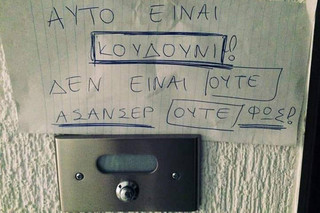 ΑΥΤΟ ΕΙΝΑΙ
ΚΟΥΔΟΥΝΙ!
ΔΕΝ ΕΙΝΑΙ ΟΥΤΕ
ΑΣΑΝΣΕΡ ΟΥΤΕ ΦΩΣ!